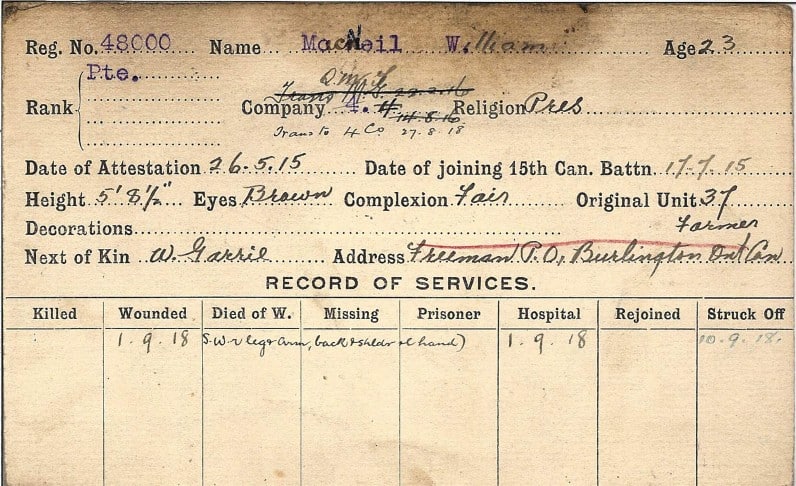 Reg. No. 48000 Name MacNeil William Age 23
Pte.
Q.M.S
Trans M.G. 22.2.16
Rank Company 4. 4 Religion Pres
14.8.16
Trans to 4 Co 27.8.18
Date of Attestation 26.5.15 Date of joining 15th Can. Battn. 17.7.15
Height 5' 8½" Eyes Brown Complexion Fair Original Unit 37
Decorations Farmer
Next of Kin W. Garrie Address Freeman P.O, Burlington Ont Can
RECORD OF SERVICES.
Killed Wounded Died of W. Missing Prisoner Hospital Rejoined Struck Off
1.9.18 S.W. r leg & arm, back & shldr & hand) 1.9.18 10.9.18.